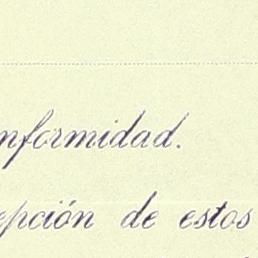 nformidad.
epción de estos